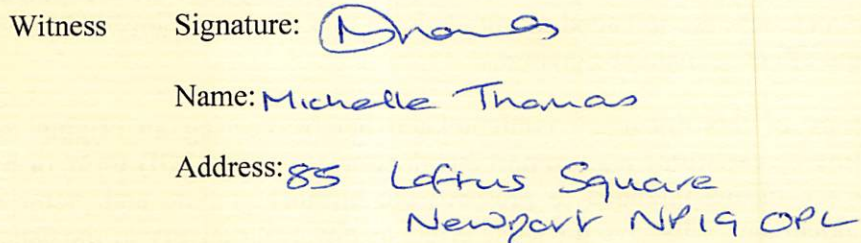 Witness Signature:
Name: Michelle Thomas
Address: 85 Loftus Square
Newport NP19 0PL